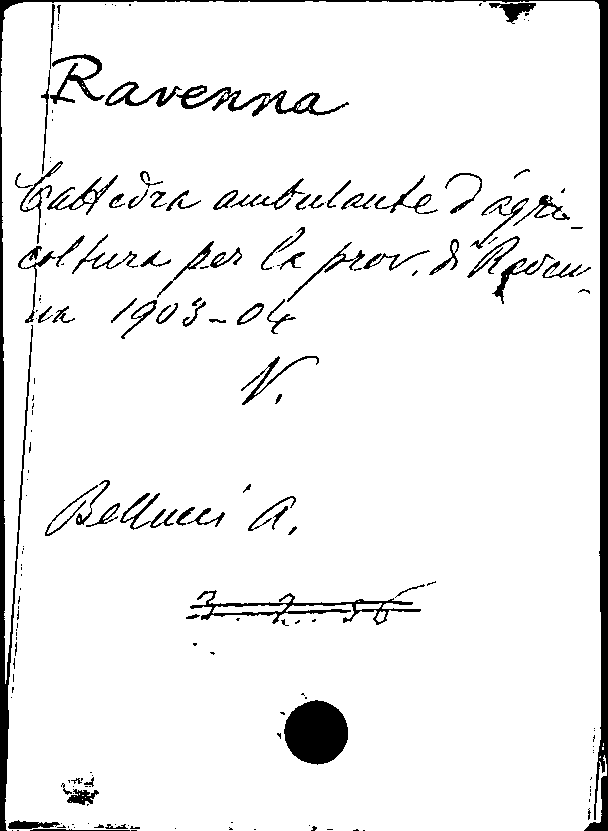 Ravenna
Cattedra ambulante d'agri-
coltura per la prov. di Raven-
na 1903-04
V.
Bellucci A.
3 2 56